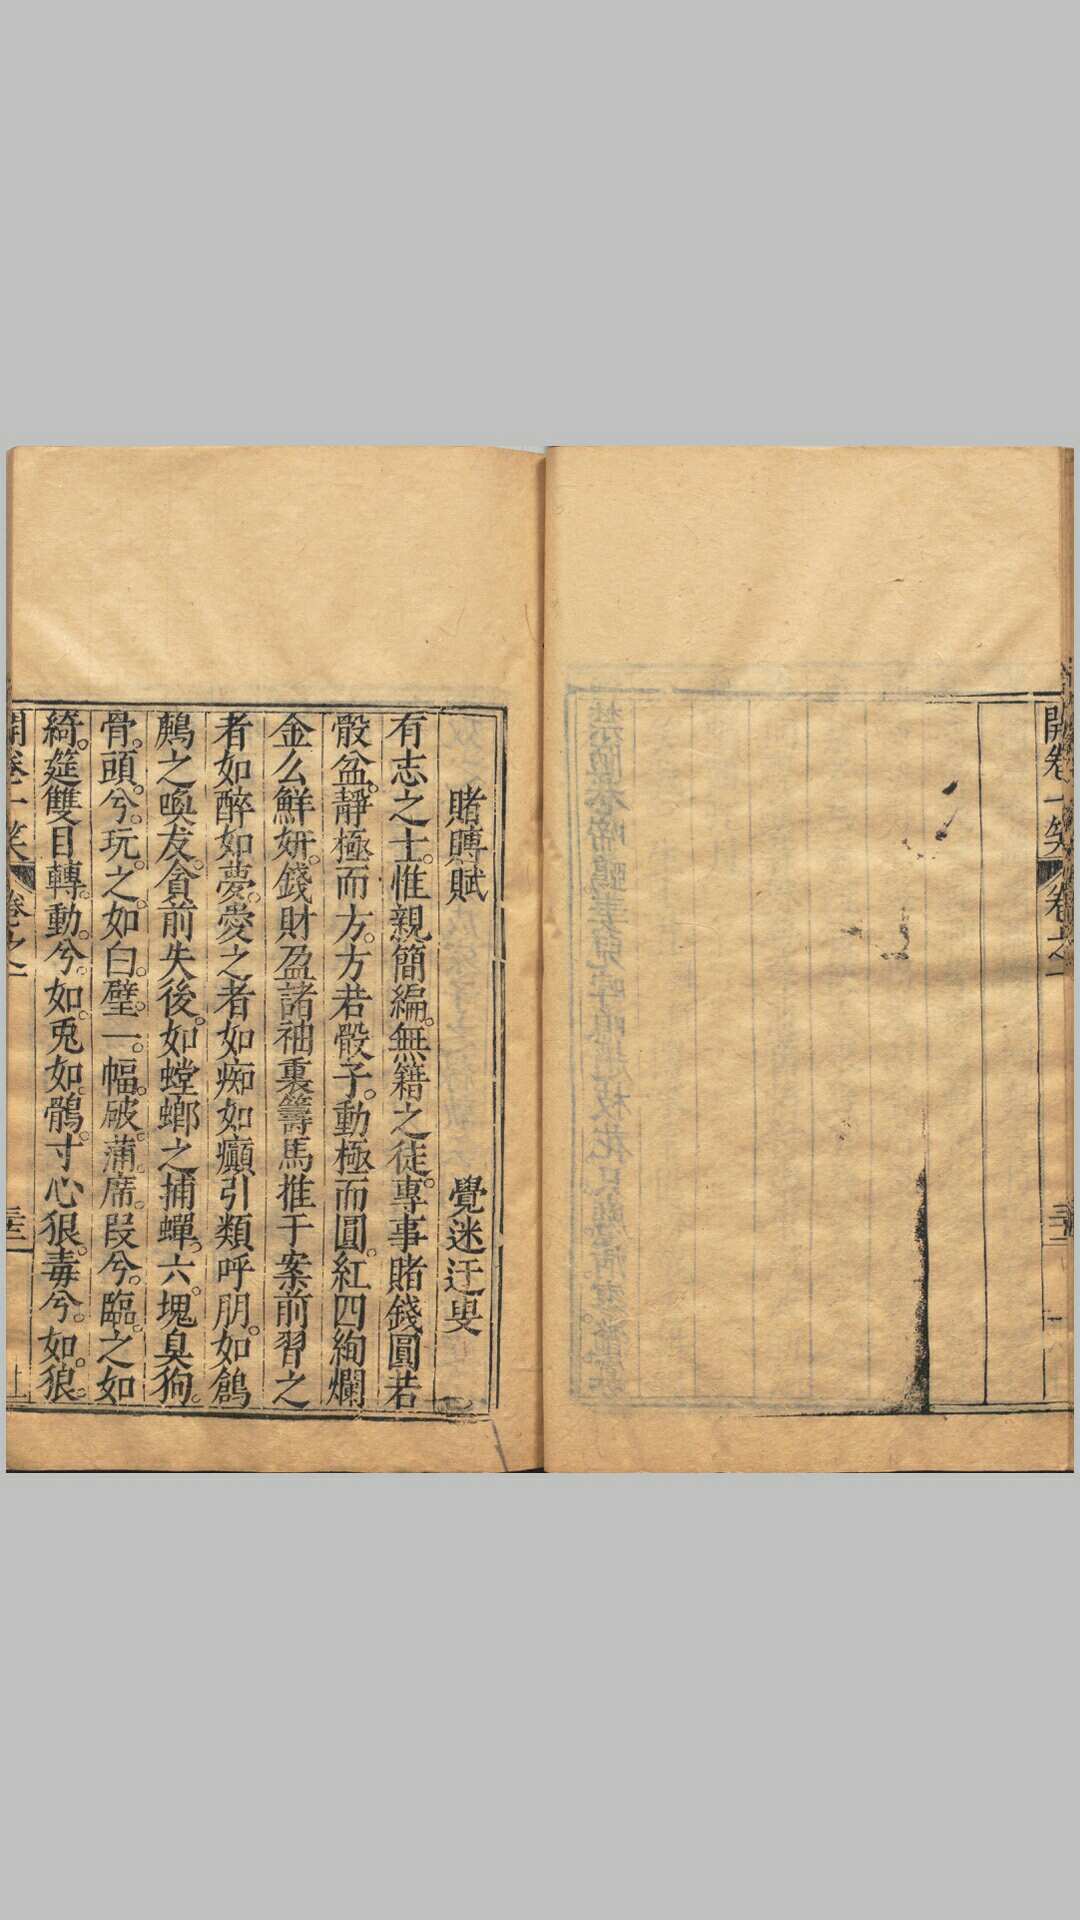 開卷一笑
卷之一
三十二
賭賻賦
覺迷迂叟
有志之士。惟親簡編。無籍之徒。專事賭錢圓若
骰盆。靜極而方。方若骰子。動極而圓。紅四絢爛
金么鮮妍。錢財盈諸袖裏籌馬推于案前習之
者如醉如夢。愛之者如痴如癲引類呼朋。如鴿
鷓之喚友。貪前失後。如螳螂之捕蟬。六塊臭狗。
骨。頭。兮。玩。之。如。白。璧。一。幅。破。蒲。席。段。兮。臨。之。如
綺。筵雙目轉。動。兮。如。兎如。鶻。寸心狠。毒。兮。如。狼。
開卷一笑
卷之一
三十三